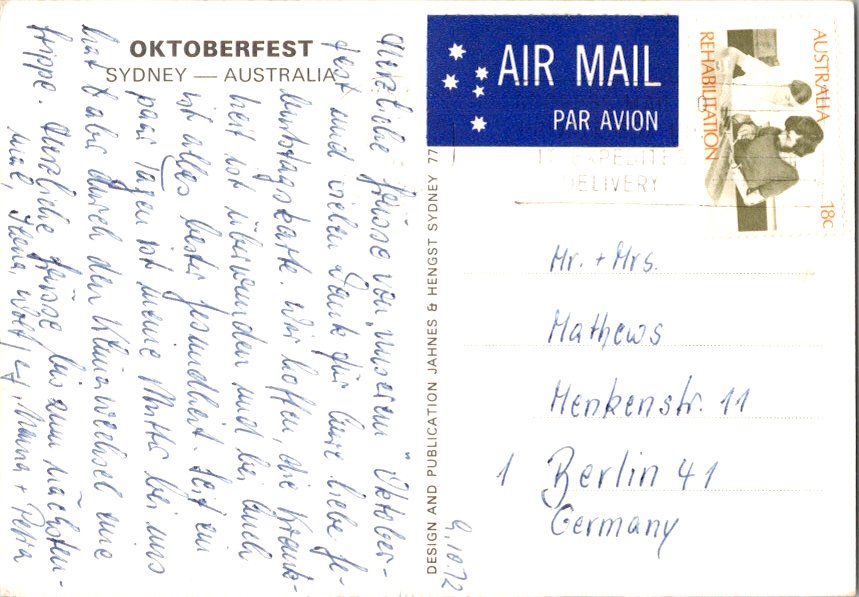 OKTOBERFEST
SYDNEY — AUSTRALIA
Herzliche Grüsse von unserem "Oktober-
fest und vielen Dank für Eure liebe Ge-
burtstagskarte. Wir hoffen, die Krank-
heit ist überwunden und bei Euch
ist alles bester Gesundheit. Seit ein
paar Tagen ist meine Mutter bei uns
hat dabei durch den Klimawechsel eine
Grippe. Herzliche Grüsse bis zum nächsten-
mal, Wolf, Mama + Petra
DESIGN AND PUBLICATION JAHNES & HENGST SYDNEY 77
9.10.72
AIR MAIL
PAR AVION
AUSTRALIA
REHABILITATION
18c
DELIVERY
Mr. + Mrs.
Mathews
Menkenstr. 11
1 Berlin 41
Germany